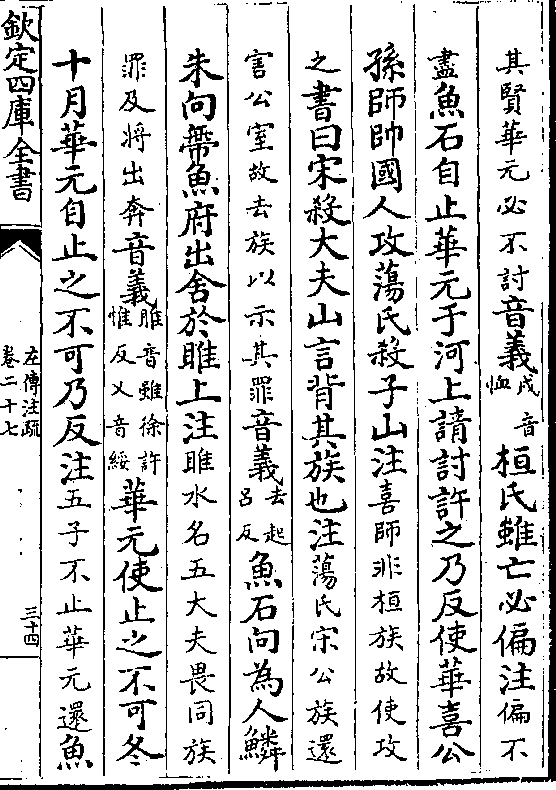 其賢華元必不討音義戌音恤桓氏雖亡必偏注偏不
盡魚石自止華元于河上請討許之乃反使華喜公
孫師帥國人攻蕩氏殺子山注喜師非桓族故使攻
之書曰宋殺大夫山言背其族也注蕩氏宋公族還
害公室故去族以示其罪音義去起呂反魚石向為人鱗
朱向帶魚府出舍於睢上注睢水名五大夫畏同族
罪及將出奔音義睢音雖徐許惟反又音綏華元使止之不可冬
十月華元自止之不可乃反注五子不止華元還魚
欽定四庫全書
左傳注疏
卷二十七
三十四